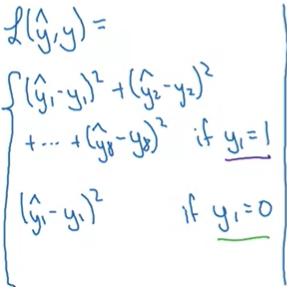 ℒ(ŷ,y) =
(ŷ₁-y₁)² + (ŷ₂-y₂)²
+ ... + (ŷ₈-y₈)² if y₁=1
(ŷ₁-y₁)² if y₁=0